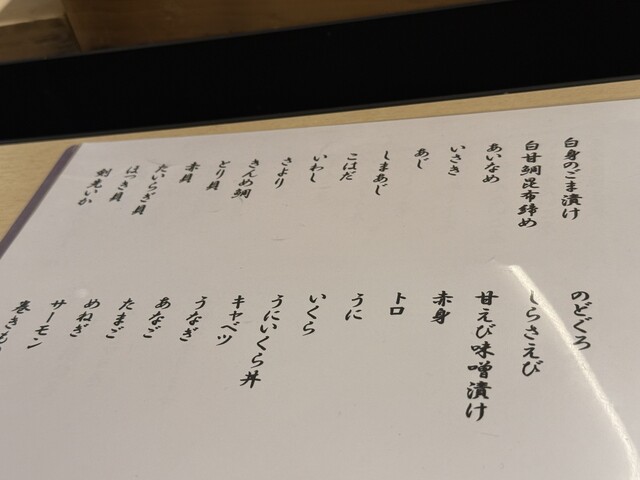 白身のごま漬け
白甘鯛昆布締め
あいなめ
いさき
あじ
しまあじ
こはだ
いわし
さより
きんめ鯛
とり貝
赤貝
たいらぎ貝
ほっき貝
剣先いか
のどぐろ
しらさえび
甘えび味噌漬け
赤身
トロ
うに
いくら
うにいくら丼
キャベツ
うなぎ
あなご
たまご
めねぎ
サーモン
巻きも